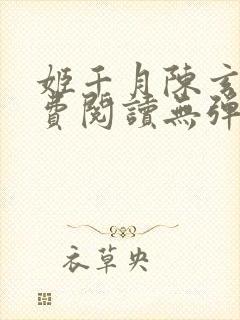 姬千月陳玄
費閱讀無彈
衣草央